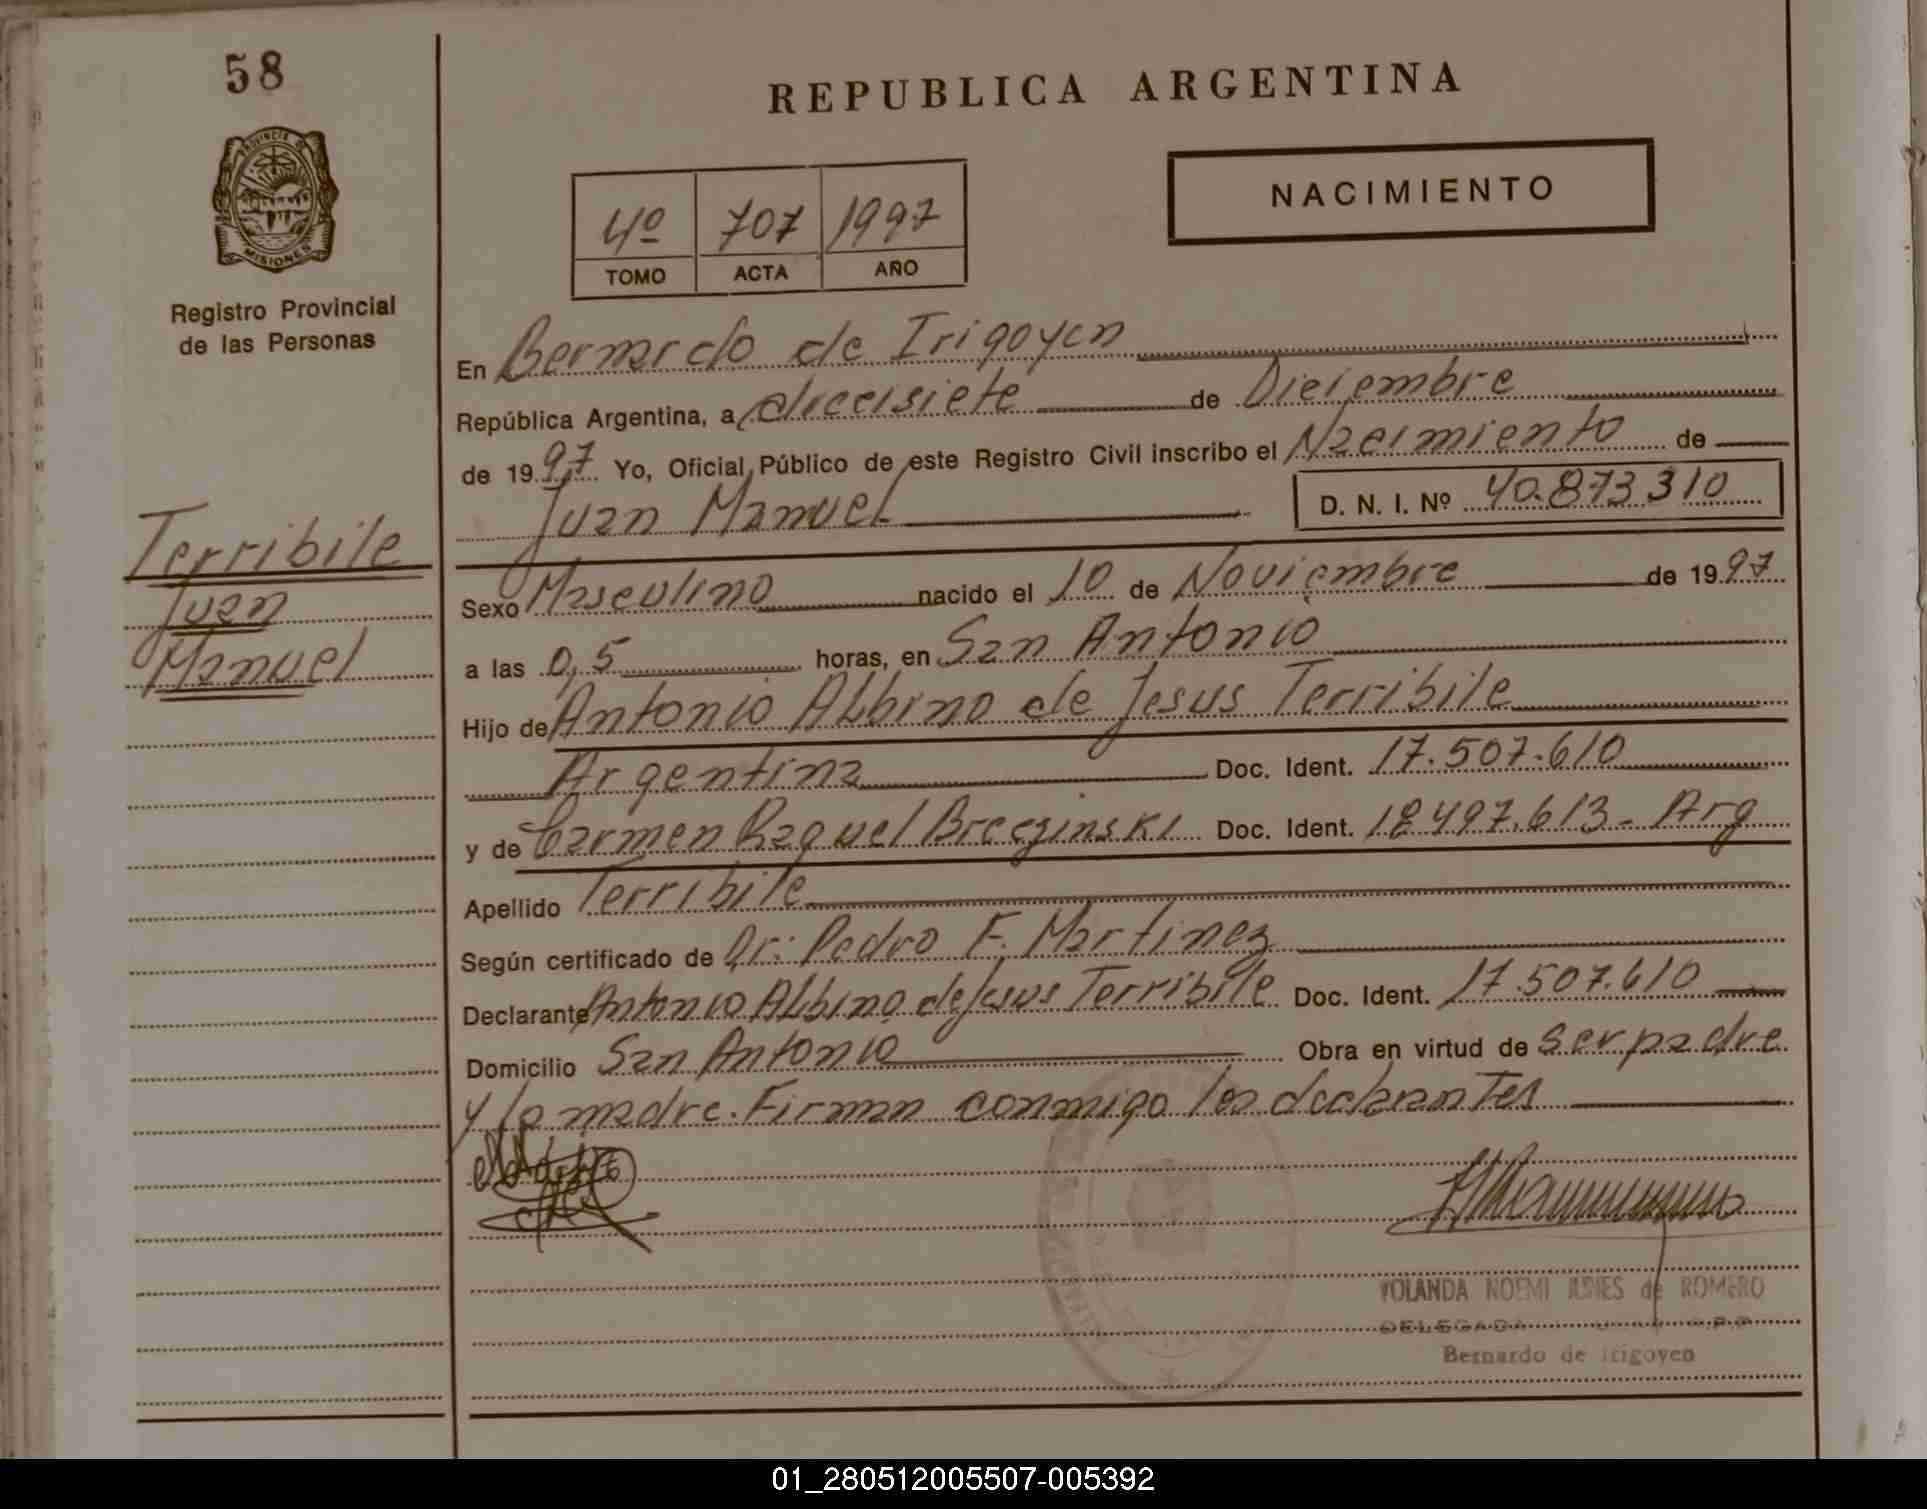 58
REPUBLICA ARGENTINA
PROVINCIA DE
MISIONES
Registro Provincial
de las Personas
4º 707 1997
TOMO ACTA AÑO
NACIMIENTO
En Bernardo de Irigoyen
República Argentina, a diecisiete de Diciembre
de 1997 Yo, Oficial Público de este Registro Civil inscribo el Nacimiento de
Juan Manuel D. N. I. Nº 40.873.310
Terribile
Juan
Manuel
Sexo Masculino nacido el 10 de Noviembre de 1997
a las 0,5 horas, en San Antonio
Hijo de Antonio Albino de Jesus Terribile
Argentina Doc. Ident. 17.507.610
y de Carmen Raquel Breczinski Doc. Ident. 18.497.613- Arg
Apellido Terribile
Según certificado de Dr: Pedro F. Martinez
Declarante Antonio Albino de Jesus Terribile Doc. Ident. 17.507.610
Domicilio San Antonio Obra en virtud de ser padre
y la madre. Firman conmigo los declarantes
YOLANDA NOEMI de ROMERO
DELEGADA
Bernardo de Irigoyen
01_280512005507-005392